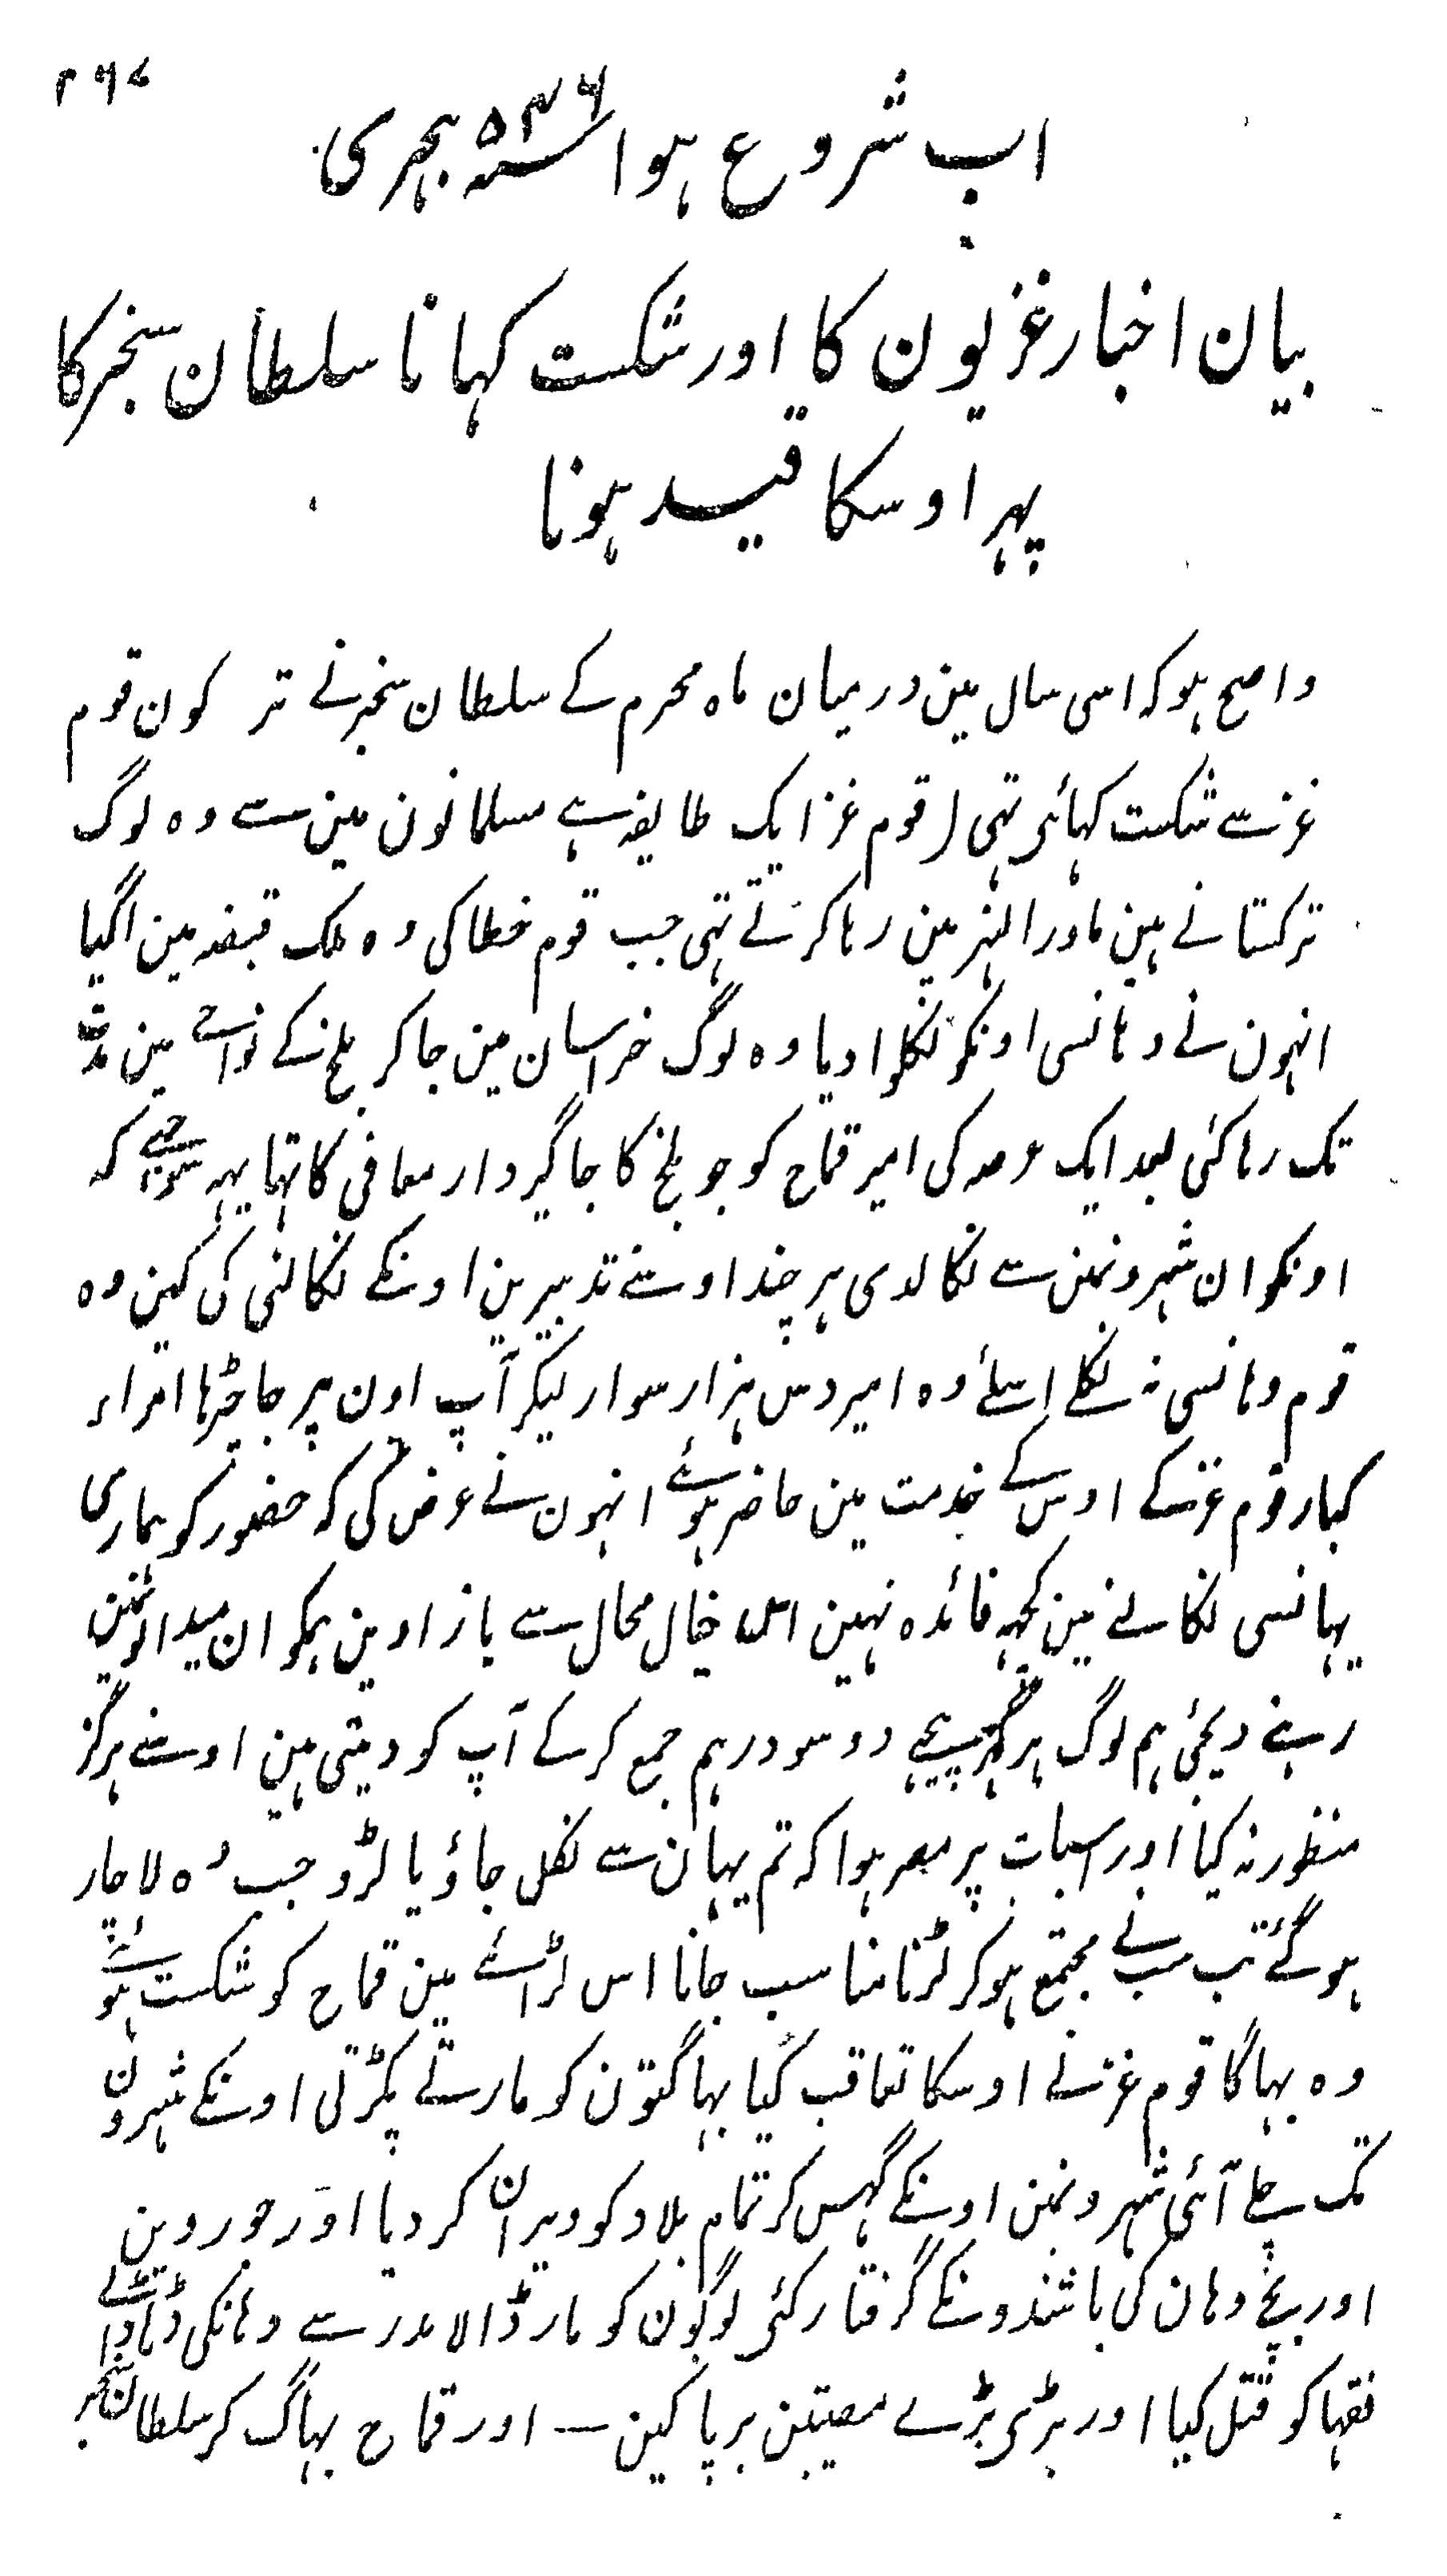 ۲۶۷
اب شروع ہوا سنہ ۵۴۶ ہجری
بیان اخبار غزیون کا اور شکست کہانا سلطان سنجر کا
پہر اوسکا قید ہونا
واضح ہو کہ اسی سال مین درمیان ماہ محرم کے سلطان سنجر نے تر کون قوم
غز سے شکست کہائی تہی ( قوم غز ایک طایفہ ہے مسلمانون مین سے وہ لوگ
ترکستانے ہین ماورالنہر مین رہا کرتے تہی جب قوم خطا کی وہ ملک قبضہ مین اگیا
انہون نے وہانسی اونکو نکلوا دیا وہ لوگ خراسان مین جا کر بلخ کے نواحے مین مدت
تک رہا کئی بعد ایک عرصہ کی امیر قماح کو جو بلخ کا جاگیردار معافی کا تہا یہہ سوجہے کہ
اونکو ان شہرونمین سے نکالدی ہر چند اوسنے تدبیرین اونکے نکالنی کی کین وہ
قوم وہانسی نہ نکلے اسلئے وہ امیر دس ہزار سوار لیکر آپ اون پر جا چڑہا امراء
کبار قوم غز کے اوس کے خدمت مین حاضر ہوئے انہون نے عرض کی کہ حضور کو ہماری
یہانسی نکالنے مین کچہہ فائدہ نہین اس خیال محال سے باز اوین ہمکو ان میدانونمین
رہنے دیجئی ہم لوگ ہر گہر پیچہے دو سو درہم جمع کر کے آپ کو دیتی ہین اوسنے ہرگز
منظور نہ کیا اور اسبات پر مصر ہوا کہ تم یہان سے نکل جاؤ یا لڑو جب وہ لاچار
ہو گئے تب سب نے مجتمع ہو کر لڑنا مناسب جانا اس لڑائے مین قماح کو شکست ہوئے
وہ بہاگا قوم غز نے اوسکا تعاقب کیا بہاگتون کو مارتے پکڑتی اونکے شہرون
تک چلے آئی شہرونمین اونکے گہس کر تمام بلاد کو ویران کر دیا اور جوروین
اور بچے وہان کی باشندونکے گرفتار کئی لوگون کو مار ڈالا مدرسے وہانکی ڈہا ڈالے
فقہا کو قتل کیا اور بڑی بڑے مصیبتین برپا کین — اور قماح بہاگ کر سلطان سنجر